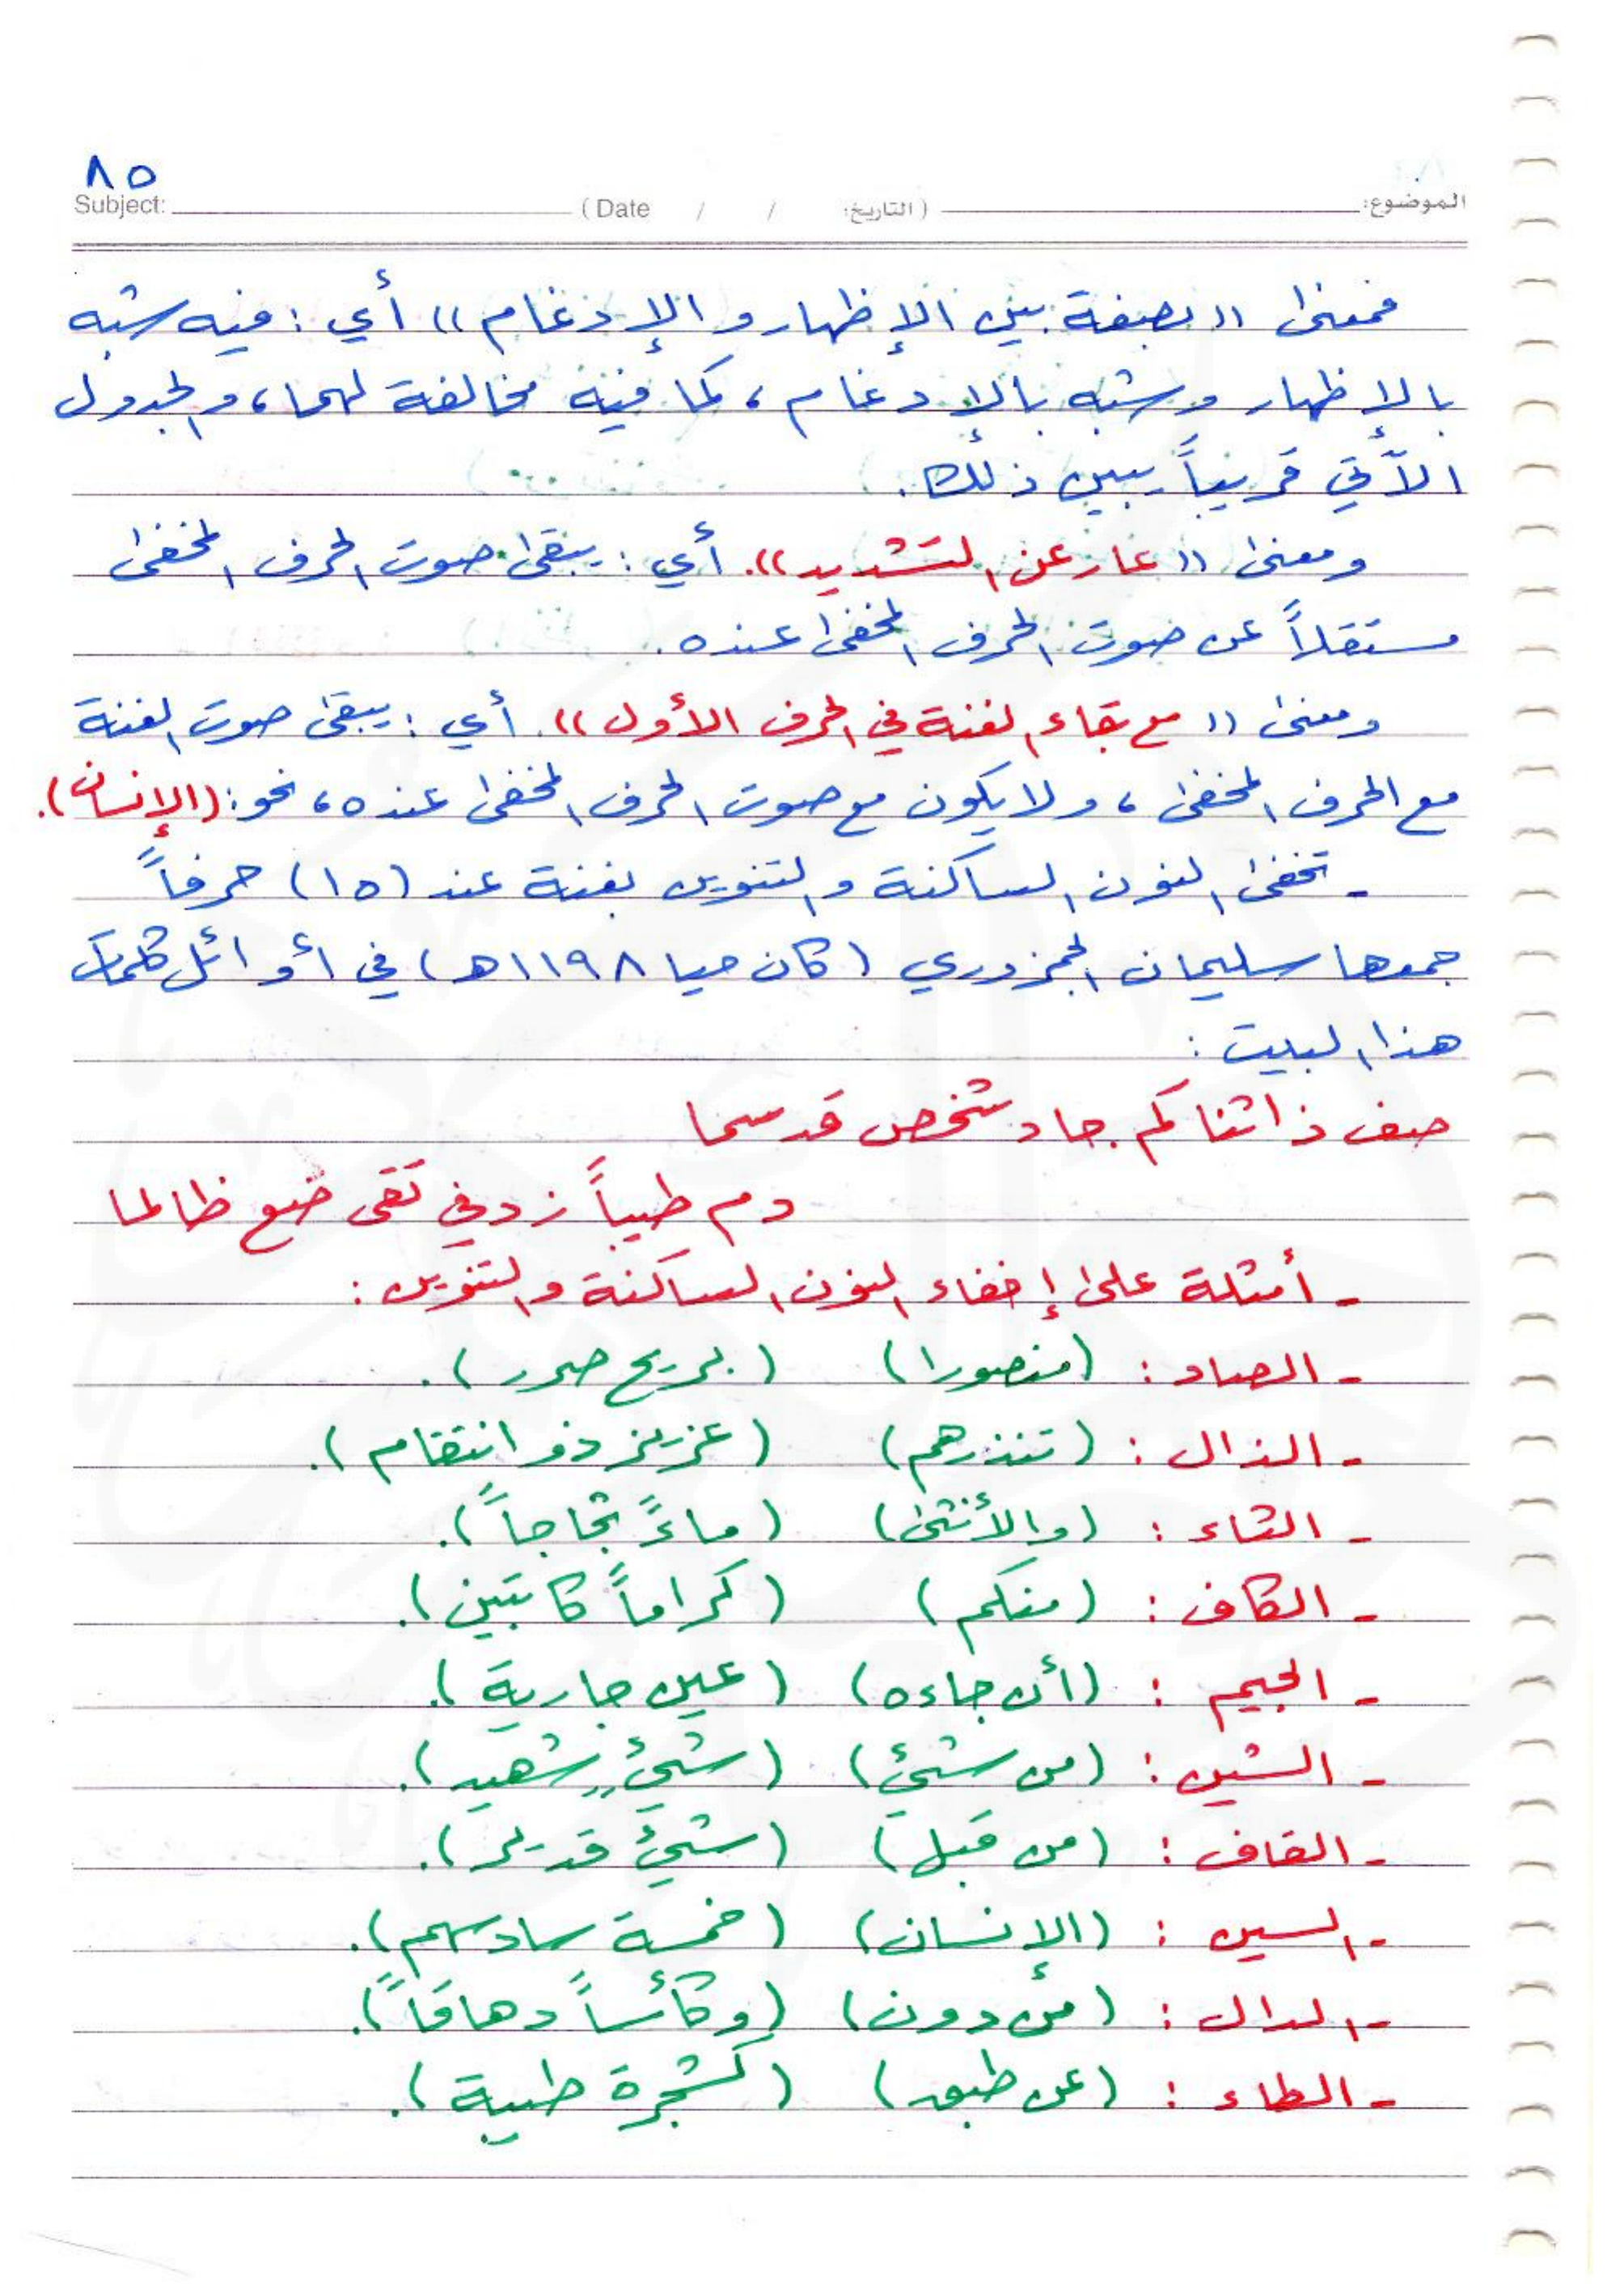 ٨٥
Subject: (Date / / التاريخ) الموضوع:
فمعنى ((بصفة بين الإظهار والإدغام)) أي : فيه شبه
بالإظهار وشبه بالإدغام ، كما فيه مخالفة لهما ، والجدول
الآتي قريباً يبين ذلك .
ومعنى ((عار عن التشديد)). أي : يبقى صوت الحرف المخفى
مستقلاً عن صوت الحرف المخفى عنده .
ومعنى ((مع بقاء الغنة في الحرف الأول)). أي : يبقى صوت الغنة
مع الحرف المخفى ، ولا يكون مع صوت الحرف المخفى عنده ، نحو : (الإنسان).
- تخفى النون الساكنة والتنوين بغنة عند (١٥) حرفاً
جمعها سليمان الجمزوري (كان حيا ١١٩٨هـ) في أوائل كلمات
هذا البيت :
صف ذا ثنا كم جاد شخص قد سما
دم طيباً زد في تقى ضع ظالما
- أمثلة على إخفاء النون الساكنة والتنوين :
- الصاد : (منصورا) (بريح صرر).
- الذال : (تنذرهم) (عزيز ذو انتقام).
- الثاء : (والأنثى) (ماءً ثجاجاً).
- الكاف : (منكم) (كراماً كاتبين).
- الجيم : (أن جاءه) (عين جارية).
- الشين : (من شيئ) (شيئٍ شهيد).
- القاف : (من قبل) (شيئ قدير).
- السين : (الإنسان) (خمسة سادسهم).
- الدال : (من دون) (وكأساً دهاقاً).
- الطاء : (عن طبق) (كشجرة طيبة).